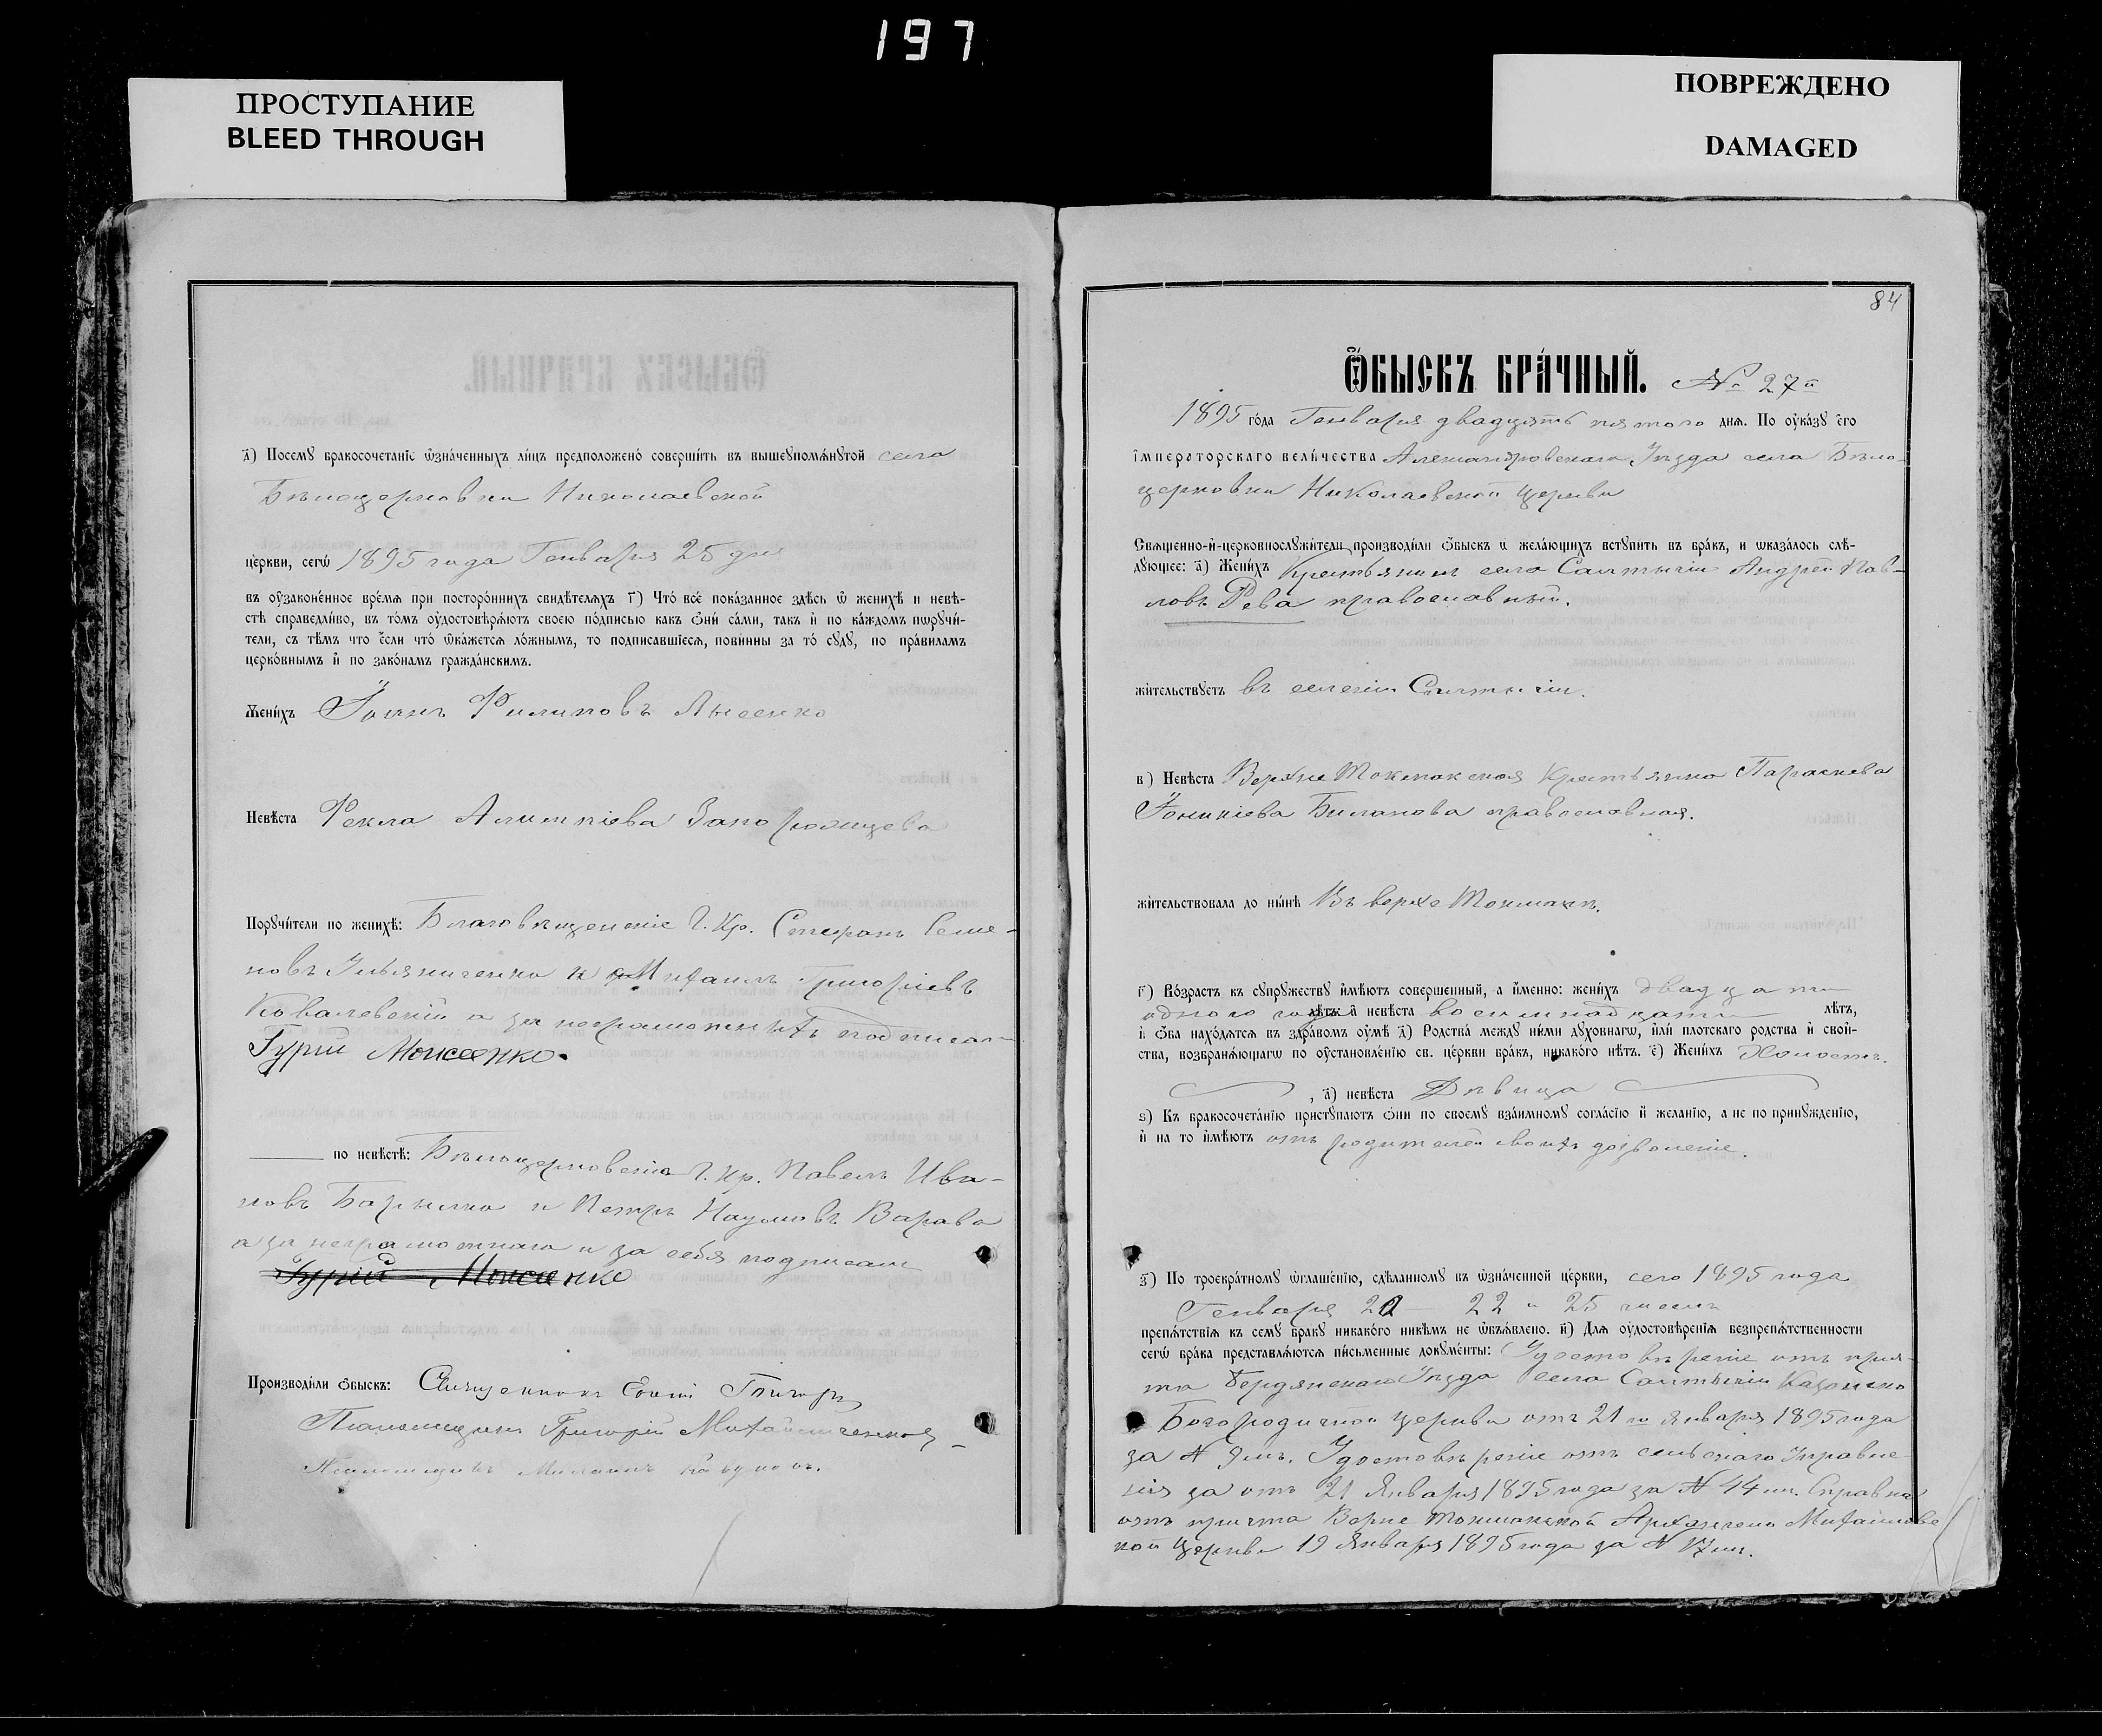 197
ПРОСТУПАНИЕ
BLEED THROUGH
ПОВРЕЖДЕНО
DAMAGED
д҃) Посемꙋ бракосочетанїе ѡ҆зна́ченныхъ ли́цъ предположено̀ соверши́ть въ вышеꙋпомѧ́нꙋтой села
Бѣлоцерковки Николаевской
це́ркви, сегѡ̀ 1895 года Генваря 25 дня
въ оу҆зако́ненное вре́мѧ при посторо́ннихъ свидѣ́телѧхъ г҃) Что̀ всѐ пока́занное здѣ́сь ѡ҆ женихѣ̀ и невѣ́-
стѣ справедли́во, въ то́мъ оу҆достовѣрѧ́ютъ своею по́дписью какъ ѻ҆нѝ са́ми, такъ и҆ по ка́ждомъ порꙋчи́-
тели, съ тѣ́мъ что є҆́сли что̀ ѡ҆ка́жетсѧ ло́жнымъ, то подписавшїесѧ, пови́нны за то̀ сꙋдꙋ̀, по пра́виламъ
церко́внымъ и҆ по зако́намъ гражда́нскимъ.
Жени́хъ Іоанъ Филиповъ Лысенко
Невѣ́ста Фекла Алимпіева Запорожцева
Порꙋчи́тели по женихѣ̀: Благовѣщенскіе Г. Кр. Стефанъ Семе-
новъ Ульяниченко и Михаилъ Григоріевъ
Ковалевскій а за неграмотныхъ подписал
Гурій Моисеенко.
по невѣ́стѣ: Бѣлоцерковскіе Г. Кр. Павелъ Ива-
новъ Барылко и Петръ Наумовъ Варава
а за неграмотнаго и за себя подписалъ
Гурій Моисеенко
Производи́ли ѻ҆́быскъ: Священникъ
Псаломщикъ Григорій
Псаломщикъ
84
Ѻ҆́БЫСКЪ БРА́ЧНЫЙ. № 27й
1895 го́да Генваря двадцать пятого днѧ. По оу҆ка́зꙋ є҆гѡ̀
і҆мператорскагѡ вели́чества Александровскаго Уѣзда села Бѣло-
церковки Николаевской церкви
Свѧще́нно-и҆-церковнослꙋжи́тели производи́ли ѻ҆́быскъ ѡ҆ жела́ющихъ встꙋпи́ть въ бра́къ, и ѡ҆каза́лось слѣ́-
дꙋющее: а҃) Жени́хъ Крестьянинъ села Салтычіи Андрей Пав-
ловъ Рева православный.
жи́тельствꙋетъ въ селеніи Салтычіи.
в҃) Невѣ́ста Верхне Токмакская Крестьянка Параскева
Іоникіева Биланова православная.
жи́тельствовала до ны́нѣ Въ верхе Токмакѣ.
г҃) Во́зрастъ къ сꙋпрꙋ́жествꙋ и҆мѣ́ютъ совершенный, а и҆́менно: жени́хъ двадцати
одного года лѣтъ а҆ невѣ́ста восемнадцати лѣтъ,
и҆ ѻ҆́ба нахо́дѧтсѧ въ здра́вомъ оу҆мѣ̀ д҃) Родства̀ междꙋ ни́ми дꙋхо́внагѡ, и҆лѝ плотскаго родства и свой-
ства, возбранѧ́ющагѡ по оу҆становле́нїю св. це́ркви бра́къ, никако́го нѣ́тъ. є҃) Жени́хъ Холостъ.
, а҃) невѣ́ста Дѣвица
ѕ҃) Къ бракосочета́нїю пристꙋпа́ютъ ѻ҆нѝ по своемꙋ̀ вза́имномꙋ согла́сїю и҆ жела́нїю, а не по принꙋжде́нїю,
и҆ на то и҆мѣ́ютъ отъ родителей своихъ дозволеніе.
з҃) По троекра́тномꙋ ѡ҆глаше́нїю, сдѣ́ланномꙋ въ ѡ҆зна́ченной це́ркви, сего 1895 года
Генваря 20 – 22 и 25 числъ
препѧ́тствїѧ къ семꙋ̀ бра́кꙋ никако́го никѣ́мъ не ѡ҆бъѧ́влено. и҃) Длѧ оу҆достовѣре́нїѧ безпрепѧ́тственности
сегѡ̀ бра́ка представлѧ́ютсѧ пи́сьменные докꙋме́нты: Удостовѣреніе отъ прич-
та Бердянскаго Уѣзда села Салтычіи Казанско
Богородичной церкви отъ 21 го Января 1895 года
за № 9 мъ. Удостовѣреніе отъ сельскаго Управле-
нія за отъ 21 Января 1895 года за № 44 мъ. Справка
отъ причта Верхне Токмакской Архангело Михайловс
кой церкви 19 Января 1895 года за № 17 мъ.